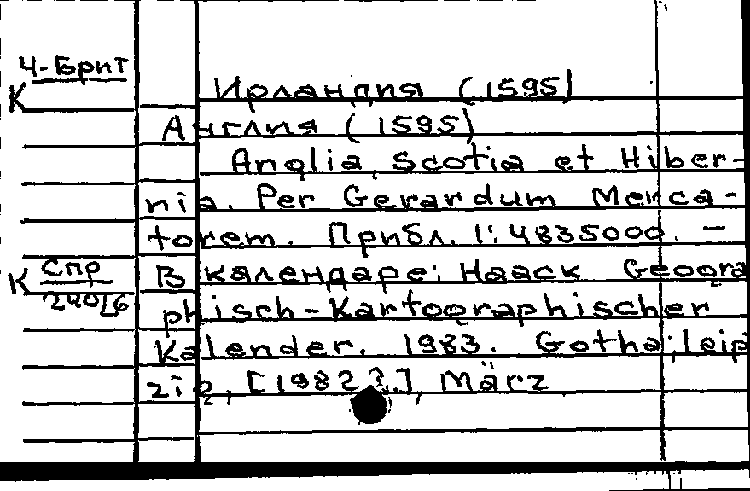 Ч-Брит
К
Ирландия (1595)
Англия (1595)
Anglia, Scotia et Hiber-
nia. Per Gerardum Merca-
torem. Прибл. 1:4835000. —
В календаре: Haack Geogra
phisch-Kartographischer
Kalender. 1983. Gotha; Leip
zig, [1982?], März
К Спр
24016